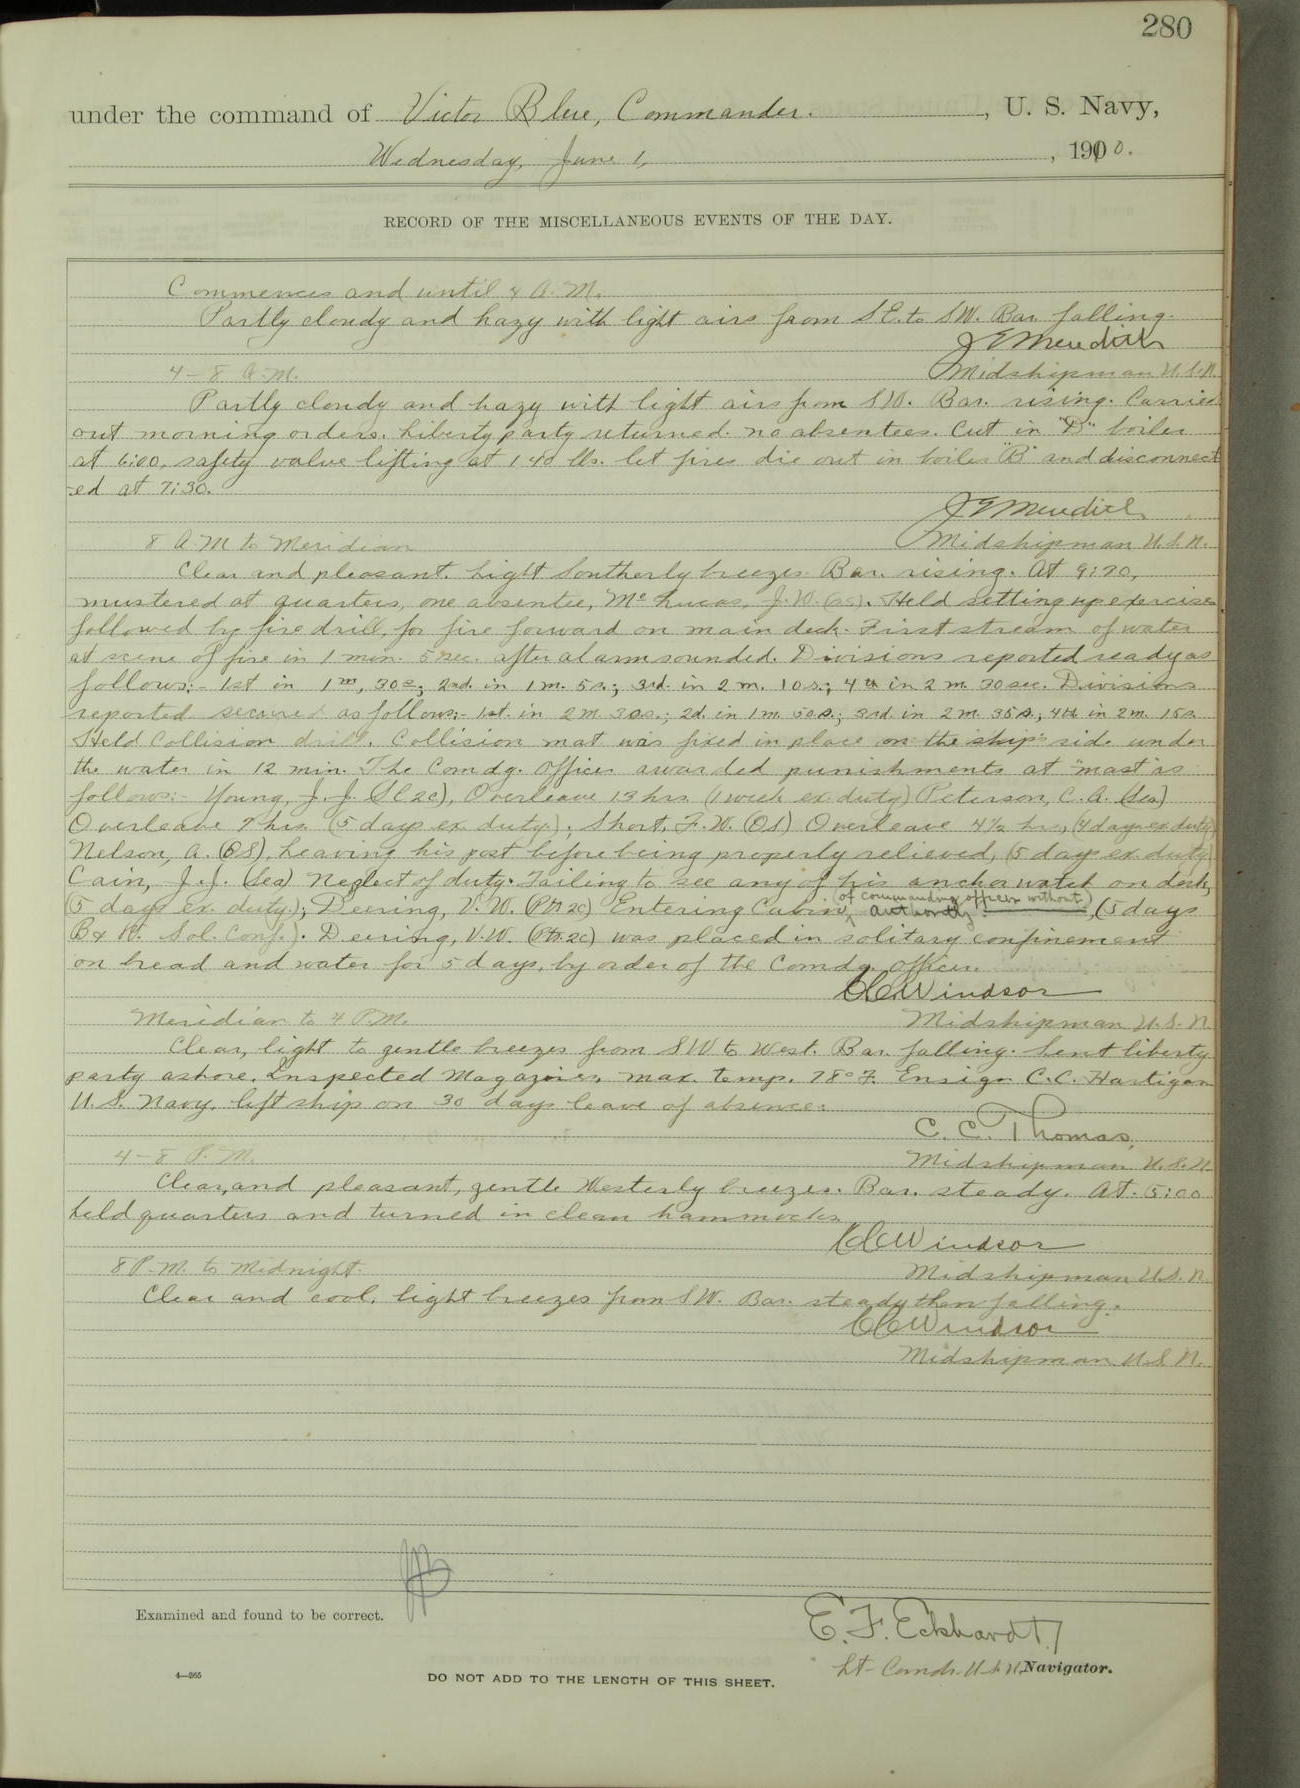 280
under the command of Victor Blue, Commander. , U. S. Navy,
Wednesday, June 1, , 1910.
RECORD OF THE MISCELLANEOUS EVENTS OF THE DAY.
Commences and until 4 A.M.
Partly cloudy and hazy with light airs from S.E. to S.W. Bar. falling.
J E Meredith
4 - 8 A.M. Midshipman U.S.N.
Partly cloudy and hazy with light airs from S.W. Bar. rising. Carried
out morning orders. Liberty party returned. no absentees. Cut in "D" boiler
at 6:00, safety valve lifting at 140 lbs. let fires die out in boiler "B" and disconnect
-ed at 7:30.
J E Meredith
8 A.M to Meridian Midshipman U.S.N.
Clear and pleasant. Light Southerly breezes. Bar. rising. At 9:20,
mustered at quarters, one absentee, McLucas, J.W. Held setting up exercises
followed by fire drill, for fire forward on main deck. First stream of water
at scene of fire in 1 min. 5 sec. after alarm sounded. Divisions reported ready as
follows:- 1st in 1m, 30s; 2nd. in 1m. 5s.; 3rd. in 2 m. 10s.; 4th in 2 m. 30 sec. Divisions
reported secured as follows:- 1st. in 2 m. 30s.; 2d. in 1m. 50s.; 3rd. in 2m. 35s.; 4th in 2m. 15s.
Held Collision drill. Collision mat was fixed in place on the ship's side under
the water in 12 min. The Comdg. Officer awarded punishments at "mast" as
follows:- Young, J. J. (Sl 2c), Overleave 13 hrs. (1 week ex. duty) Peterson, C. A. (Sea)
Overleave 7 hrs. (5 days ex. duty.); Short, F.W. (OS) Overleave 4½ hrs, (4 days ex duty)
Nelson, A. (OS), Leaving his post before being properly relieved, (5 days ex. duty)
Cain, J.J. (Sea) Neglect of duty. Failing to see any of his anchor watch on deck,
(of commanding officer without)
(5 days ex. duty.); Deering, V. W. (Ptr 2c) Entering Cabin, authority , (5 days
B & W. Sol. Conf.). Deering, V.W. (Ptr. 2c) was placed in solitary confinement
on bread and water for 5 days, by order of the Comdg. Officer.
CCWindsor
Meridian to 4 P.M. Midshipman U.S.N.
Clear, light to gentle breezes from SW to West. Bar. falling. Sent liberty
party ashore. Inspected Magazines, max. temp. 78° F. Ensign C.C. Hartigan
U.S. Navy. left ship on 30 days leave of absence.
C. C. Thomas,
4 - 8 P. M. Midshipman U.S.N.
Clear, and pleasant, gentle Westerly breezes. Bar. steady. At 5:00
held quarters and turned in clean hammocks.
CCWindsor
8 P.M. to Midnight. Midshipman U.S.N.
Clear and cool, light breezes from SW. Bar. steady then falling.
CCWindsor
Midshipman U.S.N.
Examined and found to be correct.
E. F. Eckhardt
Lt-Comdr. U.S.N. Navigator.
4—265
DO NOT ADD TO THE LENGTH OF THIS SHEET.